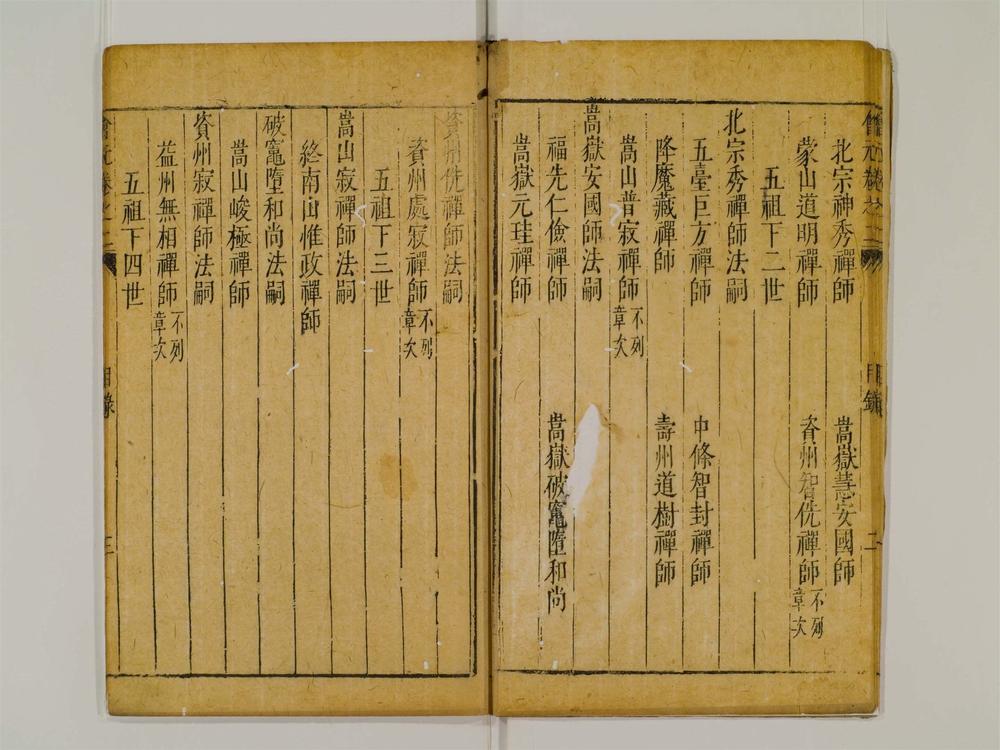 北宗神秀禪師 嵩嶽慧安國師
蒙山道明禪師 資州智侁禪師不列章次
五祖下二世
北宗秀禪師法嗣
五臺巨方禪師 中條智封禪師
降魔藏禪師 壽州道樹禪師
嵩山普寂禪師不列章次
嵩嶽安國師法嗣
福先仁儉禪師 嵩嶽破竈墮和尚
嵩嶽元珪禪師
資州侁禪師法嗣
資州處寂禪師不列章次
五祖下三世
嵩山寂禪師法嗣
終南山惟政禪師
破竈墮和尚法嗣
嵩山峻極禪師
資州寂禪師法嗣
益州無相禪師不列章次
五祖下四世